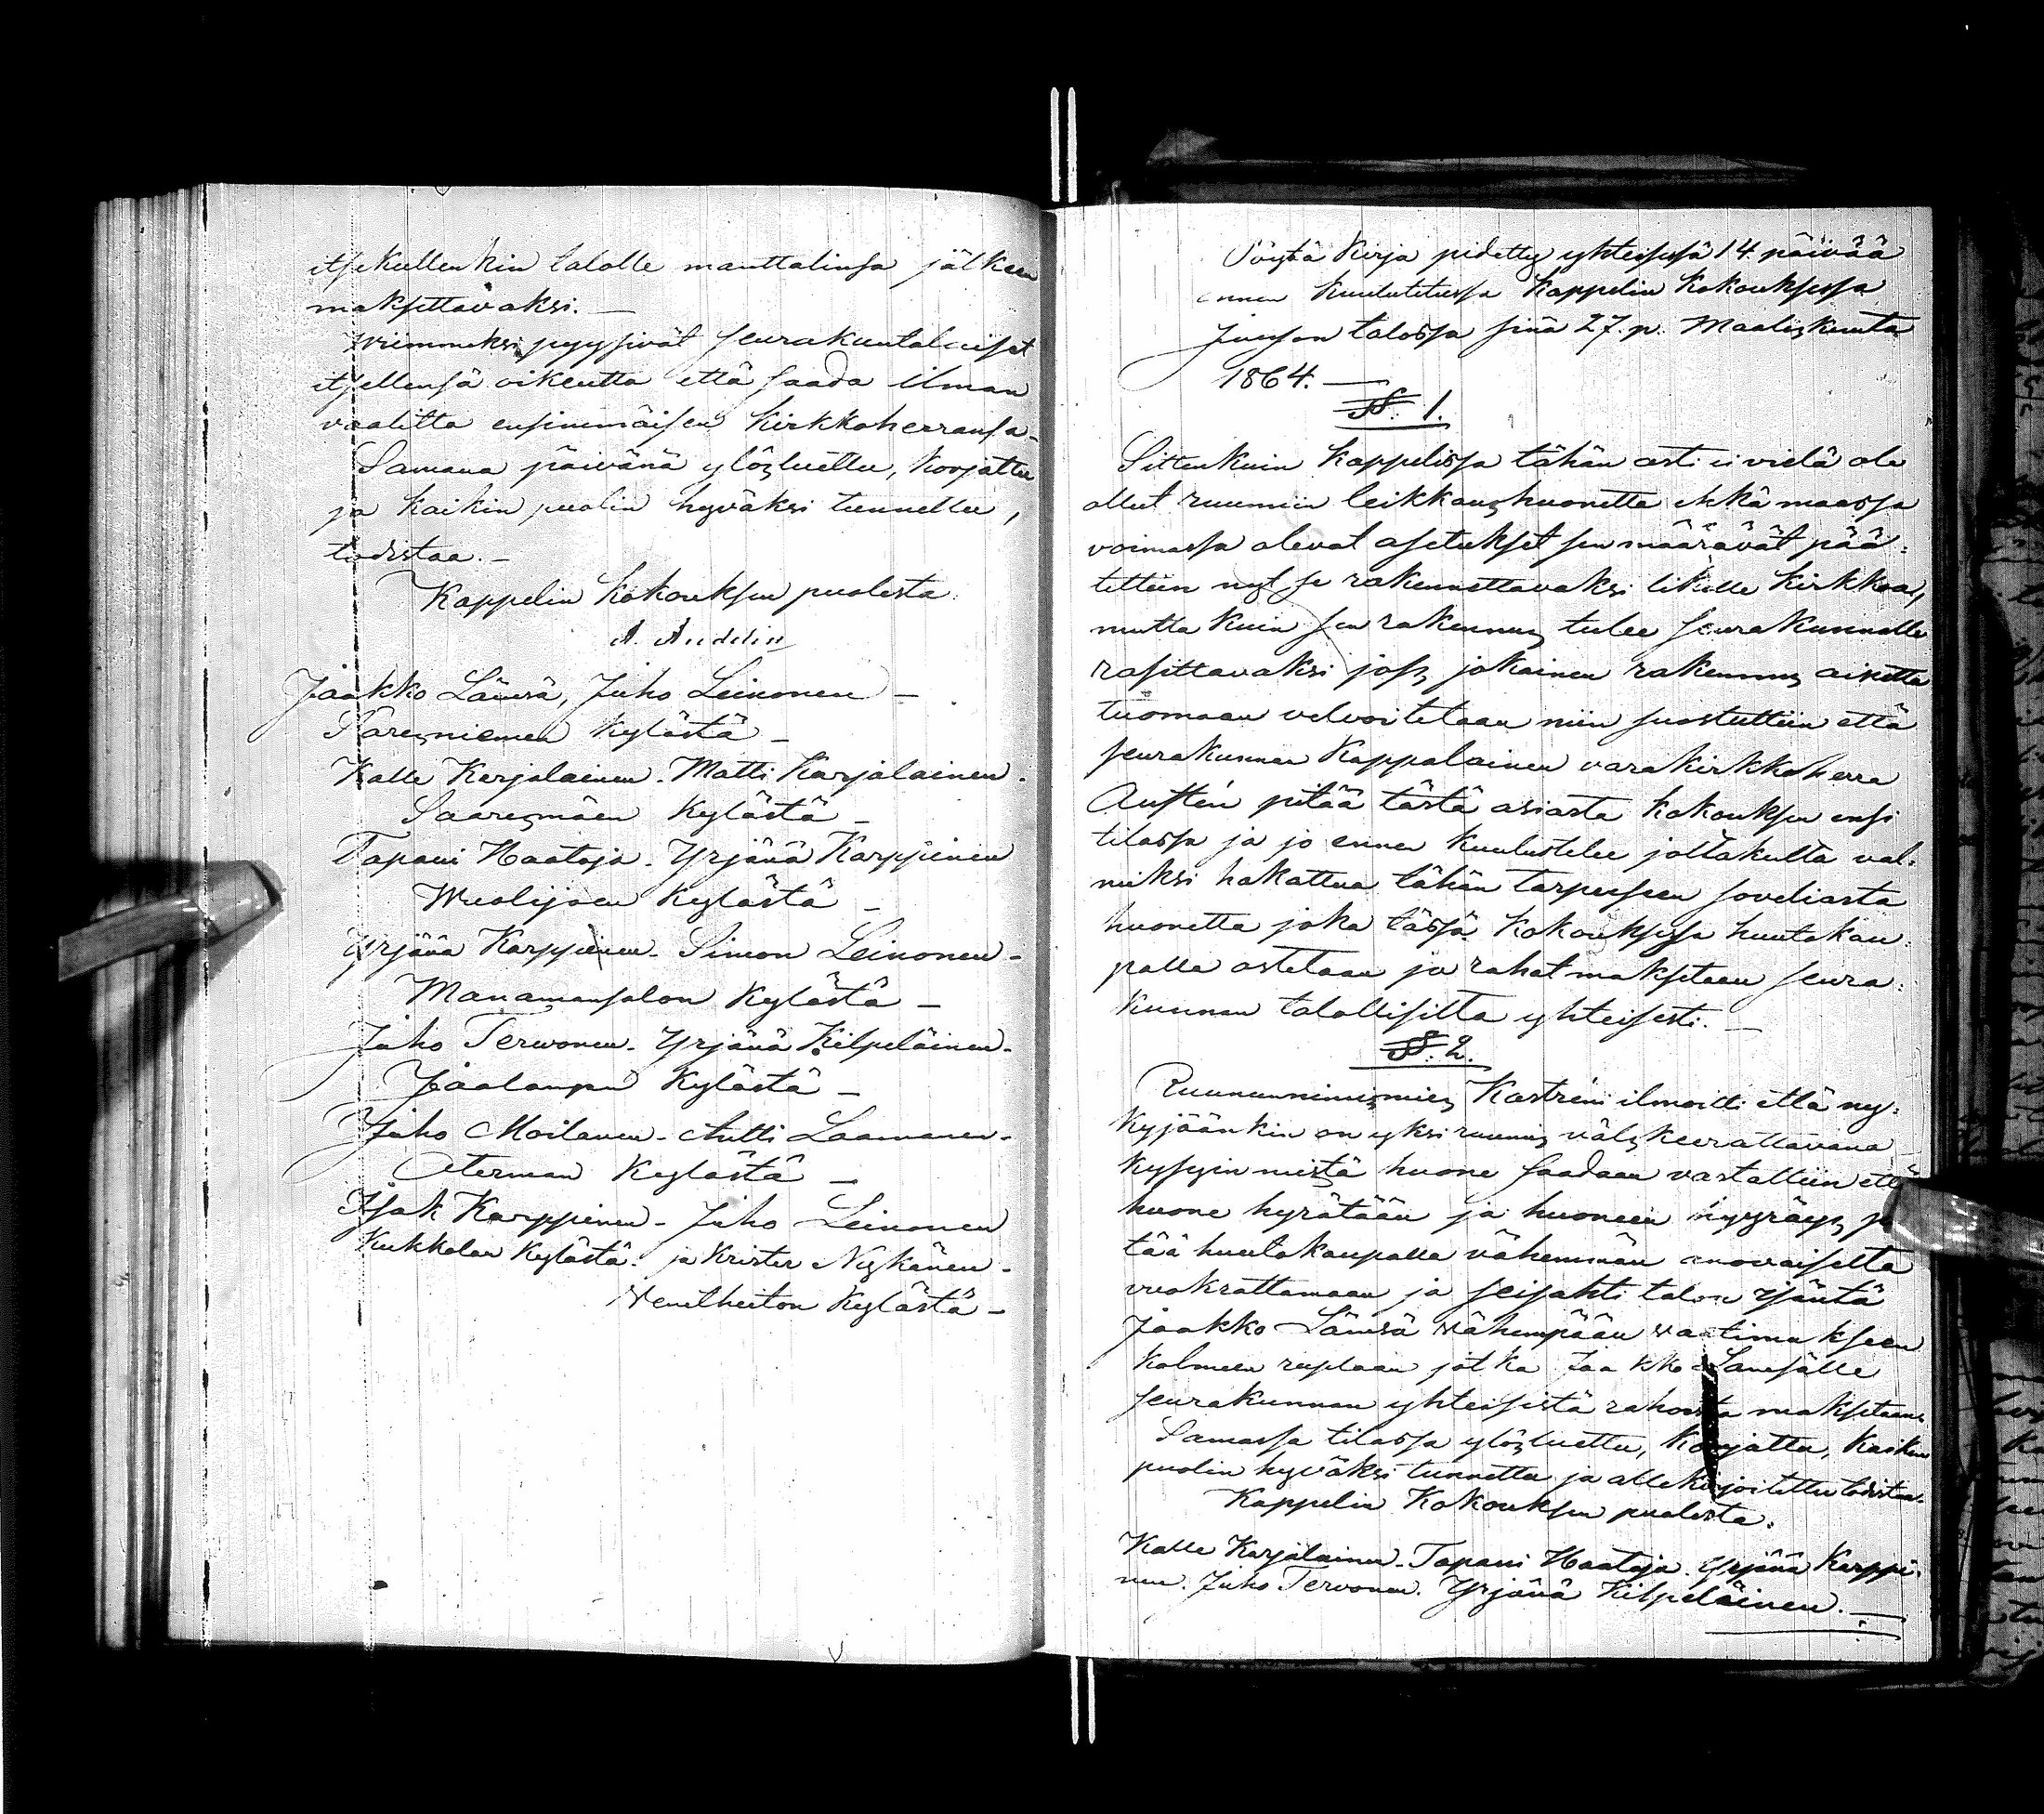 itsekullenkin talolle manttalinsa jälkeen
maksettavaksi. —
Wiimmeksi pyysivät seurakuntalaiset
itsellensä oikeutta että saada ilman
vaalitta ensimmäisen Kirkkoherransa -
Samana päivänä ylösluettu, korjattu
ja kaikin puolin hyväksi tunnettu,
todistaa. -
Kappelin Kokouksen puolesta:
A. Andelin
Jaakko Lämsä, Juho Leinonen -
Säresniemen Kylästä -
Kalle Karjalainen. Matti Karjalainen.
Saaresmäen Kylästä -
Tapani Haataja. Yrjänä Karppinen
Wuolijoen Kylästä -
Yrjänä Karppinen. Simon Leinonen -
Manamansalon Kylästä -
Juho Terwonen. Yrjänä Kilpeläinen -
Jaalangan Kylästä -
Juho Moilanen - Antti Laamanen -
Oterman Kylästä -
Isak Karppinen - Juho Leinonen
Kukkolan Kylästä. ja Krister Nyskänen -
Neuilheiton Kylästä -
Pöytä Kirja pidetty yhteisessä 14 päivää
ennen kuulutetussa Kappelin Kokouksessa
talossa sinä 27. p. Maaliskuuta
1864. —
§. 1.
Sittenkuin Kappelissa tähän asti ei vielä ole
ollut ruumiin leikkaushuonetta ehkä maassa
voimassa olevat asetukset sen määrävät pää-
tettiin nyt se rakennettavaksi likelle kirkkoa,
mutta kuin sen rakennus tulee seurakunnalle
rasittavaksi jos, jokainen rakennus aineita
tuomaan velvoitetaan niin suostuttiin että
seurakunnan Kappalainen varakirkkoherra
Austén pitää tästä asiasta kokouksen ensi
tilassa ja jo ennen kuulustelee joltakulta val-
miiksi hakattua tähän tarpeeseen soveliasta
huonetta joka tässä kokouksessa huutokau-
palla ostetaan ja rahat maksetaan seura-
kunnan talollisilta yhteisesti. —
§. 2.
Ruununnimismies Kastrén ilmoitti että ny-
kyjäänkin on yksi ruumis
kysyin mistä huone saadaan vastattiin että
huone hyrätään ja huoneen hyyräys
tää huutokaupalla vähemmän anovaiselta
vuokrattamaan ja seisahti talon isäntä
Jaakko Lämsä vähempään vaatimukseen
kolmeen ruplaan jotka Jaakko Lämsälle
seurakunnan yhteisistä rahoista maksetaan.
Samassa tilassa ylösluettu, korjattu, kaikin
puolin hyväksi tunnettu ja allekirjoitettu todistaa.
Kappelin Kokouksen puolesta:
Kalle Karjalainen. Tapani Haataja. Yrjänä Karppi-
nen. Juho Tervonen. Yrjänä Kilpeläinen. —